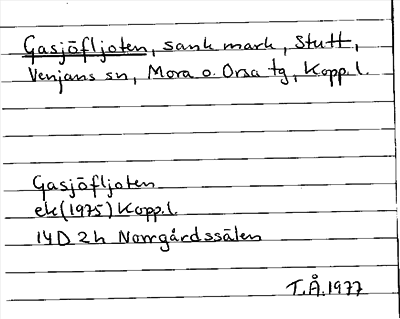 Gasjöfljoten, sank mark, Stutt,
Venjans sn, Mora o. Orsa tg, Kopp.l.
Gasjöfljoten
ek(1975) Kopp.l.
14D 2h Norrgårdssälen
T.Å.1977